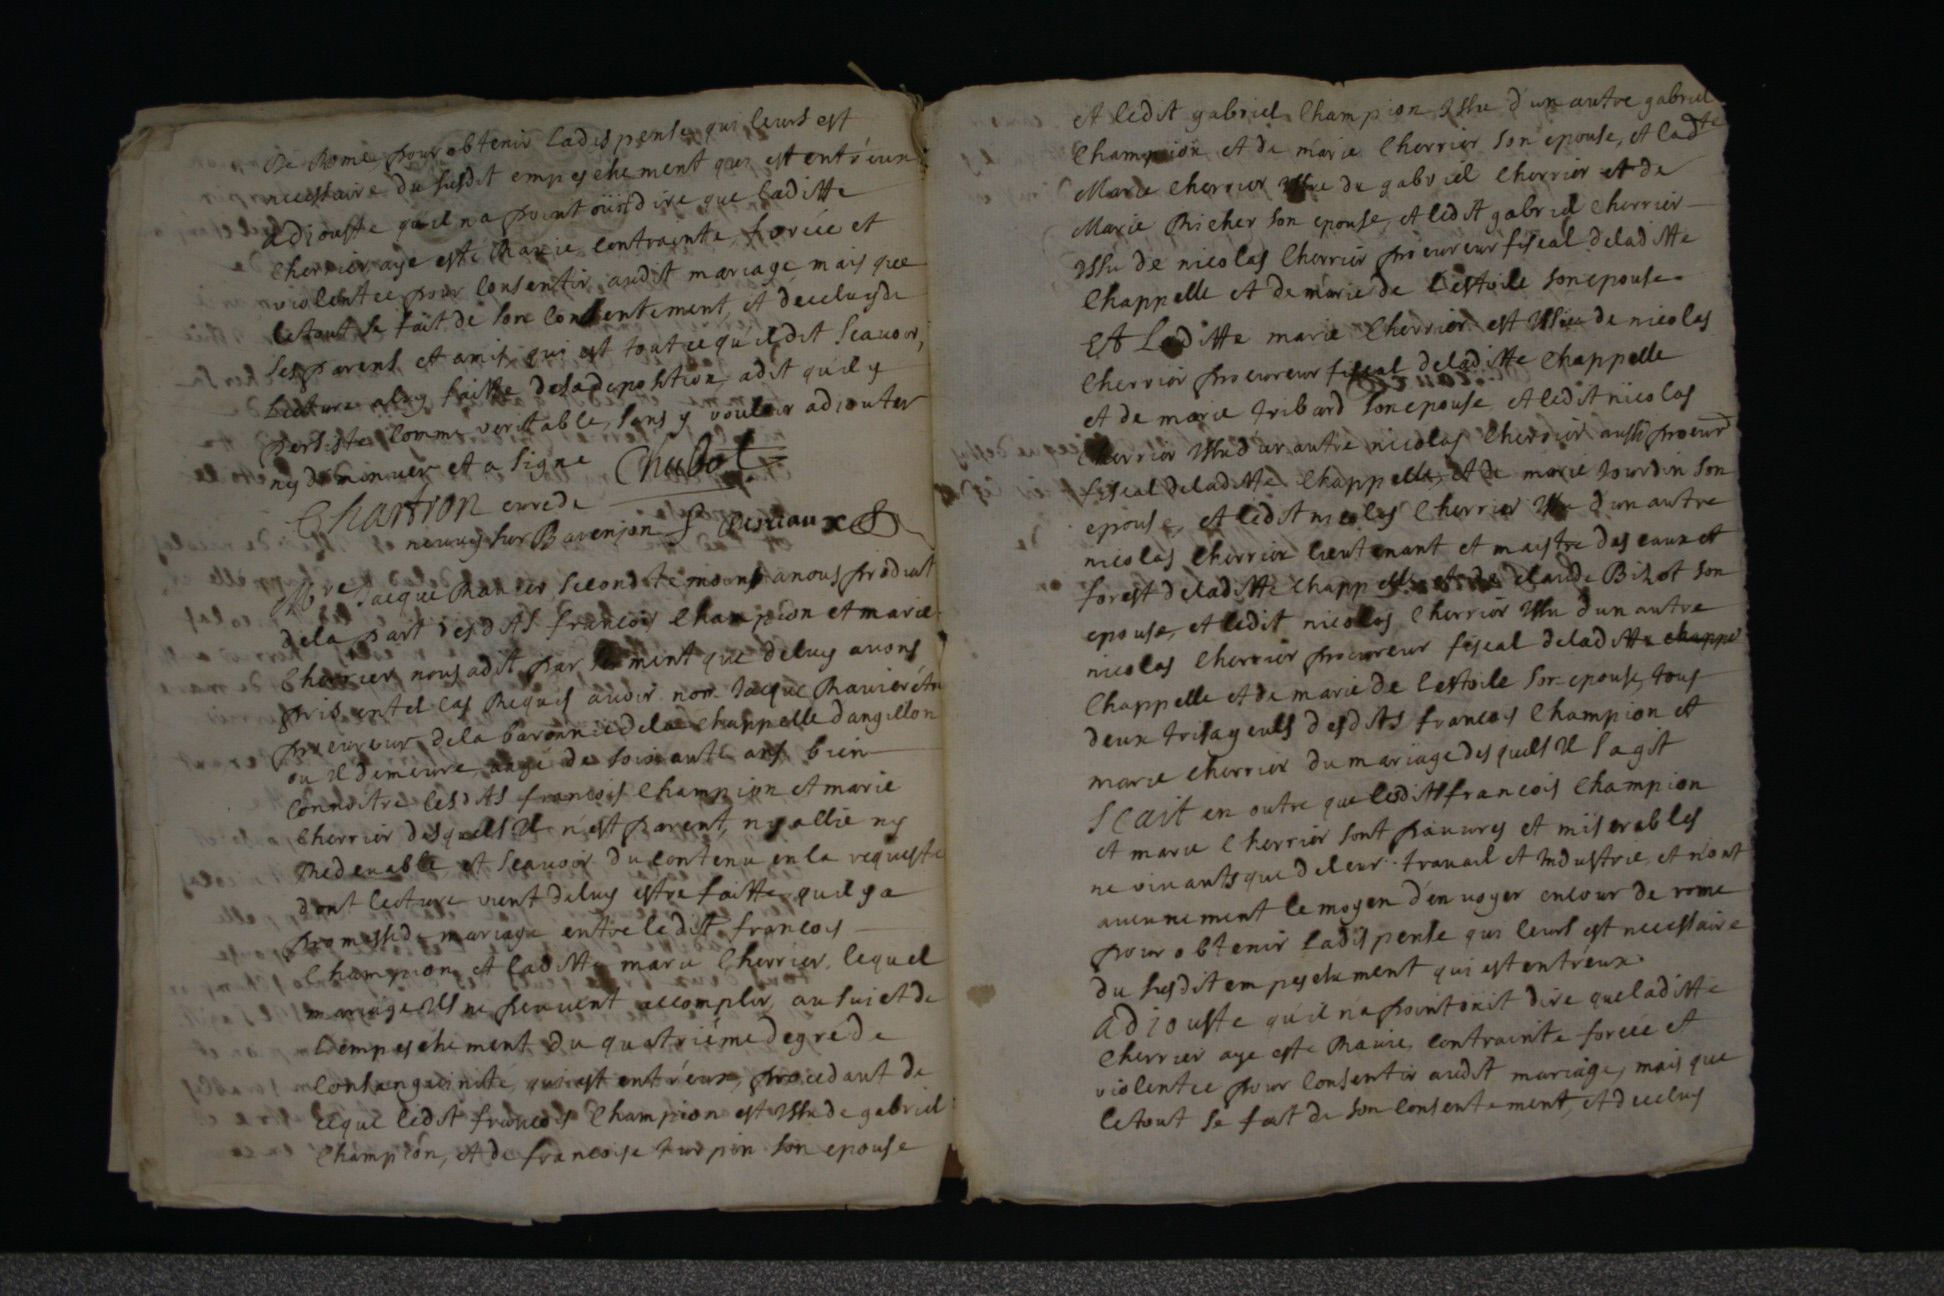 de Rome pour obtenir ladispense qui leurs est
necessaire du susdit empeschement qui est entr'eux
adjouste qu'il na point ouit dire que laditte
Cherrier aye esté Ravie, contrainte, forcée et
violentée pour consentir audit mariage mais que
letout se fait de son consentement, et deceluyde
ses parens et amis qui est tout ce qu'il dit scauoir,
Lecture aluy faitte desadeposition, adit qu'il y
persiste comme veritable, sans y vouloir adiouter
ny diminuer et a signé Chubot
Chartron curé de
neuuy sur Baranjon
Mre Jacque Rauier second temoins anous produit
dela part desdits francois Champion et marie
Cherrier nous adit par serment que deluy avons
pris entel cas Requis auoir nom Jacque Rauier être
procureur dela baronnie dela Chappelle dangillon
ou Il demeure, aagé de soixante ans bien
Connoître lesdits francois Champion et marie
Cherrier desquels Il n'est parent, ny allié ny
Redeuable et Scauoir du contenu en la requeste
dont lecture vient deluy estre faitte qu'il y a
promesse de mariage entre ledit francois
Champion et laditte marie Cherrier, lequel
mariage Ils ne peuuent accomplir, au suiet de
L'empeschement du quatriéme degré de
Consanguinité, qui est entr'eux, procedant de
ceque ledit francois Champion est Issu de gabriel
Champion, et de francoise turpin son epouse
et ledit gabriel Champion Issu d'un autre gabriel
Champion et de marie Cherrier son epouse, et ladte
Marie Cherrier Issue de gabriel Cherrier et de
Marie Richer son epouse, et ledit gabriel Cherrier
Issu de nicolas Cherrier procureur fiscal deladitte
Chappelle et de marie de L'estoile son epouse.
Et Laditte marie Cherrier est Issue de nicolas
Cherrier procureur fiscal deladitte Chappelle
et de marie tribard son epouse, et ledit nicolas
Cherrier Issu d'un autre nicolas Cherrier aussi procurr
fiscal deladitte Chappelle, et de marie Jourdin son
epouse, et ledit nicolas Cherrier Issu d'un autre
nicolas Cherrier lieutenant et maistre des eaux et
forest deladitte Chappelle et de Claude Bizot son
epouse, et ledit nicolas Cherrier Issu d'un autre
nicolas Cherrier procureur fiscal deladitte chappe
Chappelle et de marie de L'estoile son epouse, tous
deux trisayeuls desdits francois Champion et
marie Cherrier du mariage desquels Il s'agit
Scait en outre que lesdits francois Champion
et marie Cherrier sont pauures et miserables
ne viuants que deleur trauail et Industrie, et n'ont
aucunement le moyen d'en uoyer encour de rome
pour obtenir ladispense qui leurs est necessaire
du susdit empeschement qui est entreux.
Adjouste qu'il na point ouit dire que laditte
Cherrier aye esté Rauie, contrainte, forcée et
violentée pour consentir audit mariage, mais que
letout se fait de son consentement, et deceluy